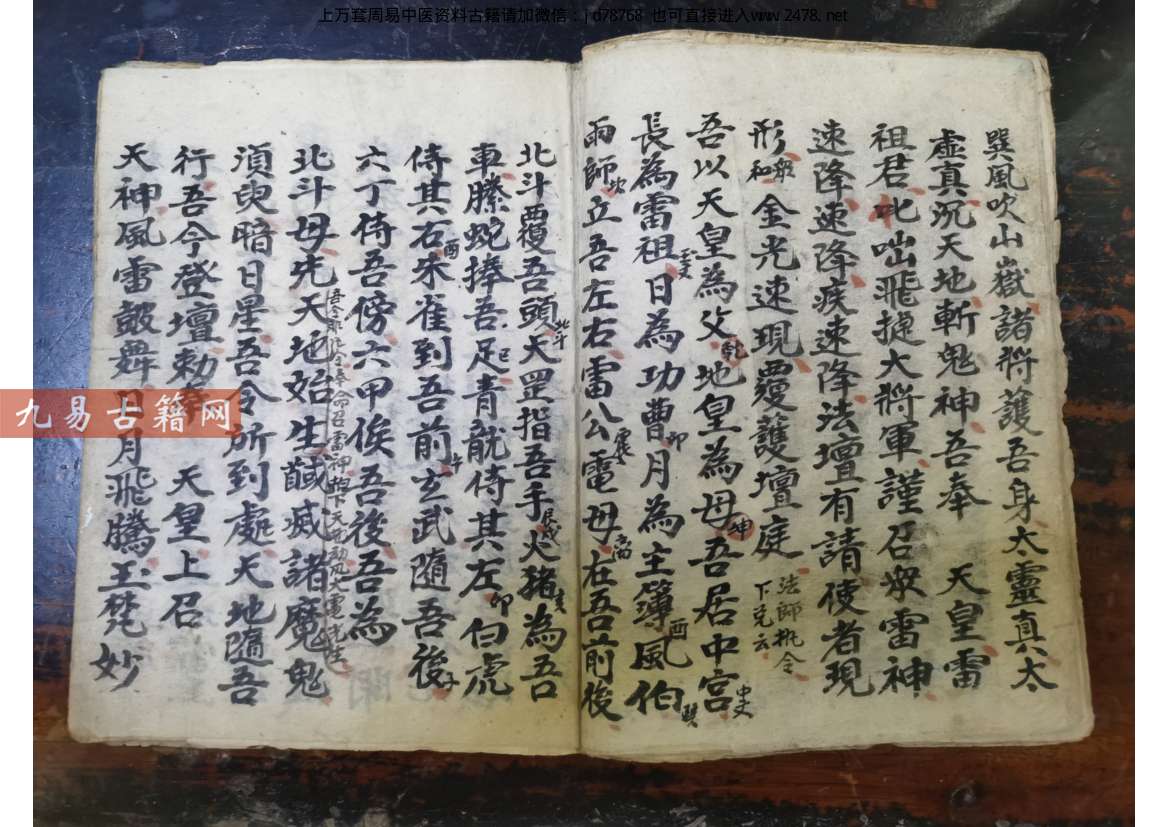 上万套周易中医资料古籍请加微信：jd78768 也可直接进入www.2478.net
巽風吹山嶽諸將護吾身太靈真太
虛真沉天地斬鬼神吾奉 天皇雷
祖君叱咄飛捷大將軍謹召眾雷神
速降速降疾速降法壇有請使者現
形 金光速現覆護壇庭 法師執令
下兌云
吾以天皇為父乾地皇為母坤吾居中宮
長為雷祖日為功曹卯月為主簿酉風伯巽
雨師坎立吾左右雷公電母在吾前後
北斗覆吾頭北斗天罡指吾手火豬亥為吾
車螣蛇捧吾足巳青龍侍其左卯白虎
侍其右酉朱雀到吾前午玄武隨吾後子
六丁侍吾傍六甲俟吾後吾為
北斗母先天地始生馘滅諸魔鬼
須臾暗日星吾令所到處天地隨吾
行吾今登壇勅 天皇上召
天神風雷鼓舞日月飛騰玉梵妙
九易古籍网